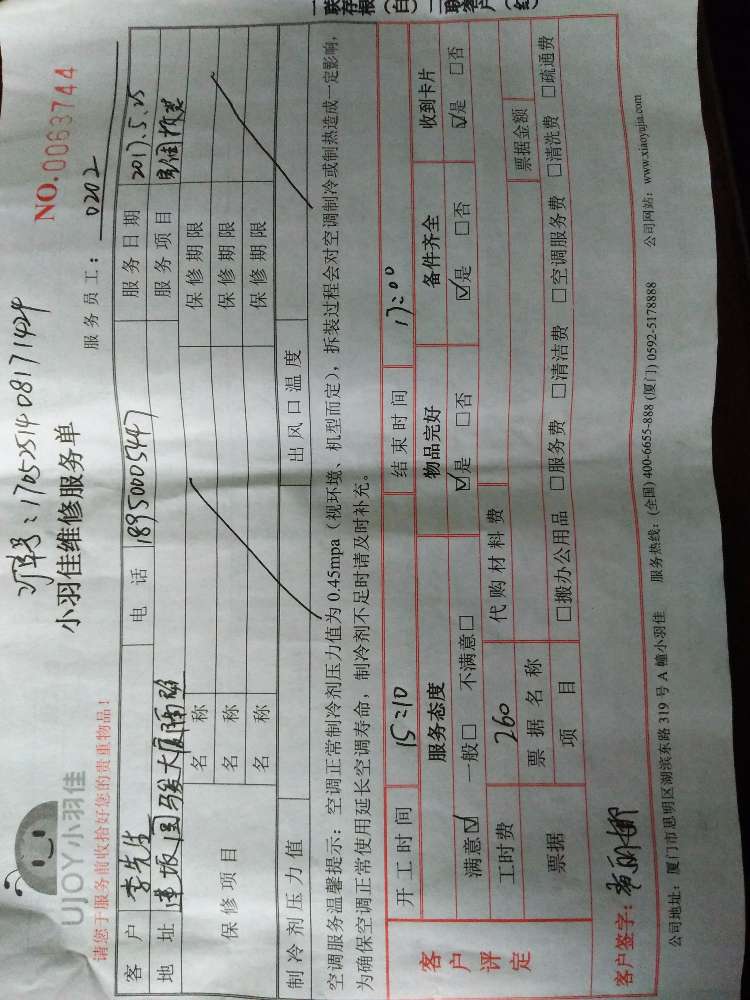 订单号：1705251408171424
UJOY小羽佳
小羽佳维修服务单
NO.0063744
请您于服务前收拾好您的贵重物品！
服务员工：0202
客户 李先生 电话 18950005447 服务日期 2017.5.25
地址 国骏大厦隔 服务项目
保修项目 名称 保修期限
名称 保修期限
名称 保修期限
制冷剂压力值 出风口温度
空调服务温馨提示：空调正常制冷剂压力值为0.45mpa（视环境、机型而定），拆装过程会对空调制冷或制热造成一定影响，
为确保空调正常使用延长空调寿命，制冷剂不足时请及时补充。
客户评定
开工时间 15:10 结束时间 17:00
服务态度 物品完好 备件齐全 收到卡片
满意☑ 一般□ 不满意□ ☑是 □否 ☑是 □否 ☑是 □否
工时费 260 代购材料费
票据 票据名称 票据金额
项目 □搬办公用品 □服务费 □清洁费 □空调服务费 □清洗费 □疏通费
客户签字：
公司地址：厦门市思明区湖滨东路319号A幢小羽佳 服务热线：(全国) 400-6655-888 (厦门) 0592-5178888 公司网站：www.xiaoyujia.com
一联存根（白） 二联客户（红）